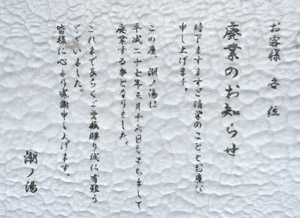 お客様各位
廃業のお知らせ
時下ますますご清栄のこととお慶び
申し上げます。
この度、潮ノ湯は
平成二十七年三月十六日をもちまして
廃業する事となりました。
これまであらたなご愛顧賜り誠に有難う
ございました。
皆様に心より感謝申し上げます。
潮ノ湯